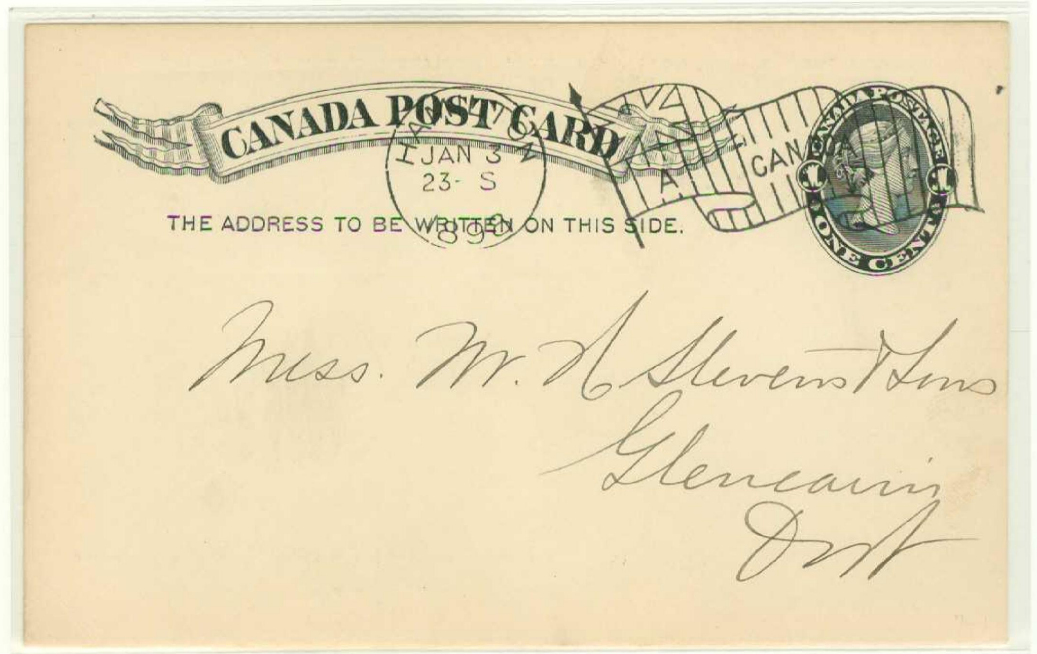 CANADA POST CARD
HAMILTON
JAN 3
23- S
A
CANADA
CANADA POSTAGE
1 1
ONE CENT
THE ADDRESS TO BE WRITTEN ON THIS SIDE.
Mess. W. H Stevens & Sons
Glencairn
Ont